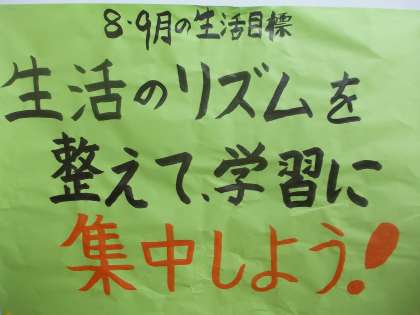 8・9月の生活目標
生活のリズムを
整えて、学習に
集中しよう!